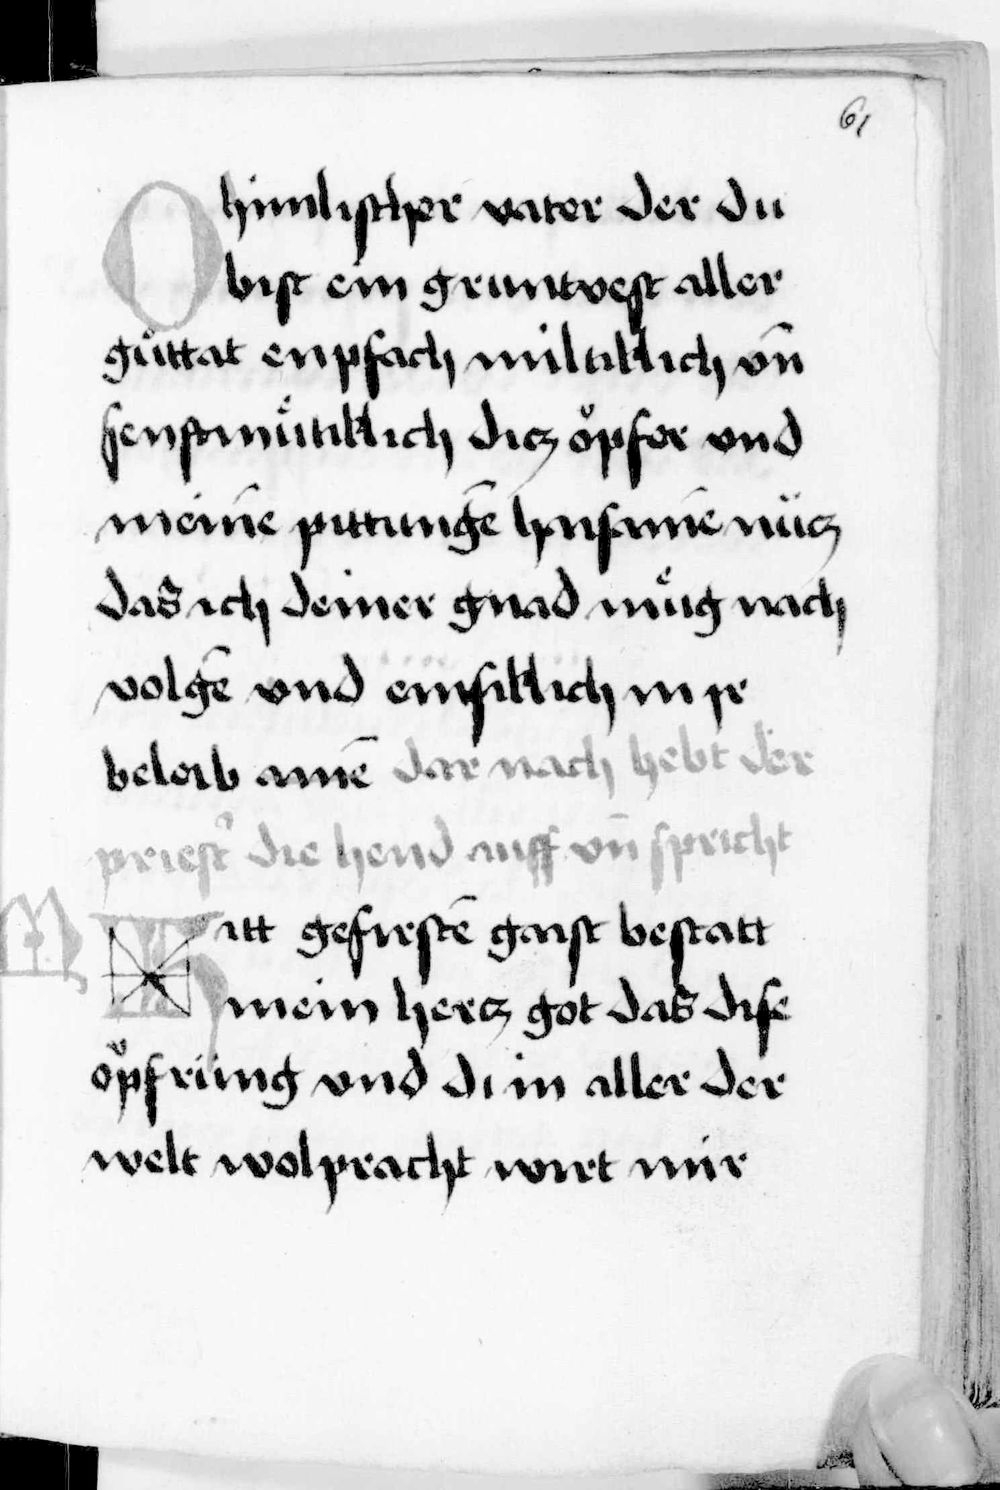 61
O himlischer vater der du
bist ein gruntvest aller
guͦttat enpfach miltiklich vn̄
senftmuͤtiklich dicz oͤpfer vnd
meinē pittungē haÿsamē nücz
das ich deiner gnad muͤg nach
volgē vnd emsiklich in ir
beleib amē dar nach hebt der
priest̓ die hend auff vn̄ spricht
M itt gefirstē gaist bestatt
mein hercz got das dise
oͤpfrüng vnd di in aller der
welt wolpracht wirt mir